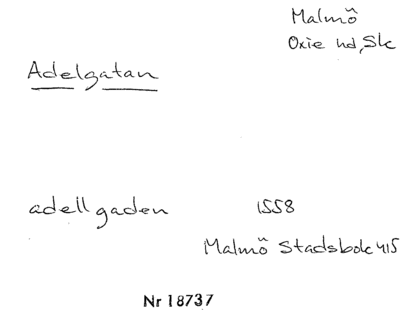 Malmö
Oxie hd, Sk
Adelgatan
adell gaden 1558
Malmö Stadsbok 415
Nr 18737